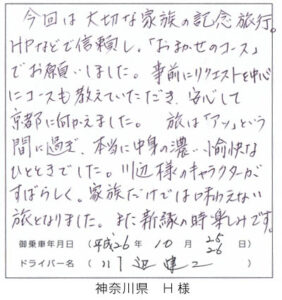 今回は大切な家族の記念旅行。
HPなどで信頼し、「おまかせのコース」
でお願いしました。事前にリクエストを中心
にコースも教えていただき、安心して
京都に向かえました。 旅は「アッ」という
間に過ぎ、本当に中身の濃い愉快な
ひとときでした。川辺様のキャラクターが
すばらしく、家族だけでは味わえない
旅となりました。また新緑の時楽しみです。
御乗車年月日 (平成26年 10月 25 26日)
ドライバー名 (川辺建二)
神奈川県 H様